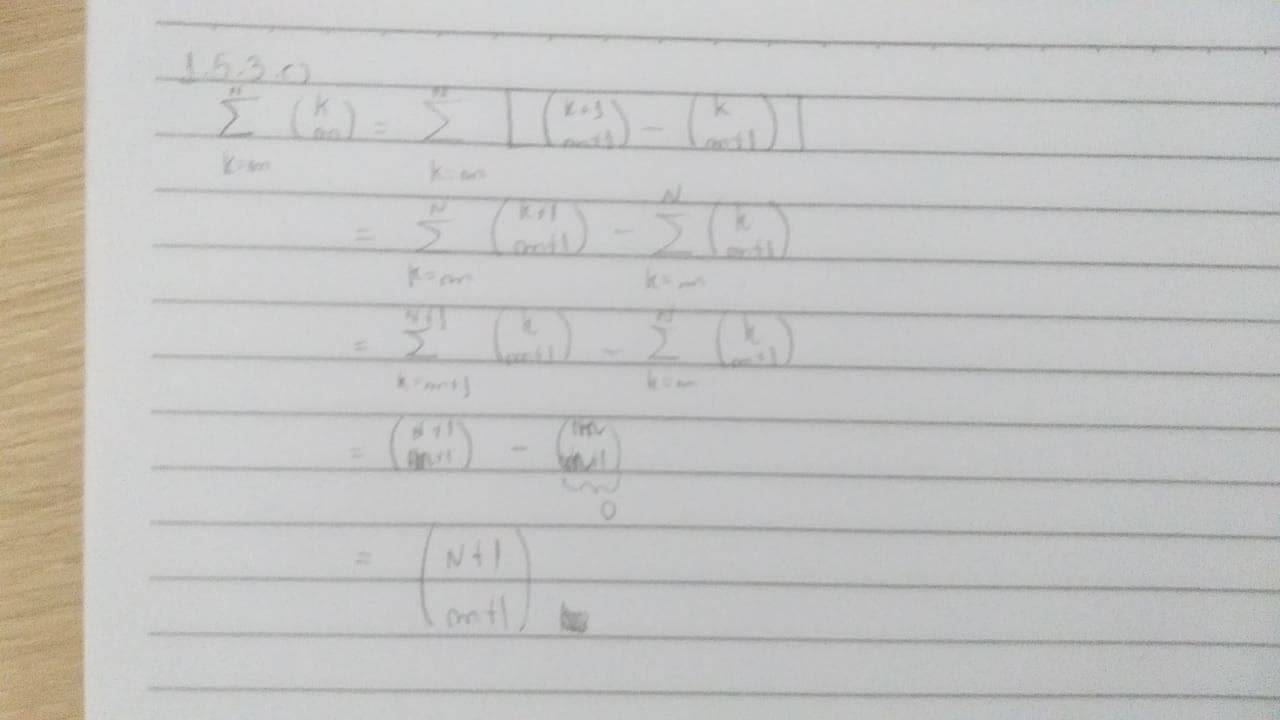 1.5.3.c)
$\sum_{k=m}^{N} \binom{k}{m} = \sum_{k=m}^{N} \left[ \binom{k+1}{m+1} - \binom{k}{m+1} \right]$
$= \sum_{k=m}^{N} \binom{k+1}{m+1} - \sum_{k=m}^{N} \binom{k}{m+1}$
$= \sum_{k=m+1}^{N+1} \binom{k}{m+1} - \sum_{k=m}^{N} \binom{k}{m+1}$
$= \binom{N+1}{m+1} - \underbrace{\binom{m}{m+1}}_{0}$
$= \binom{N+1}{m+1}$